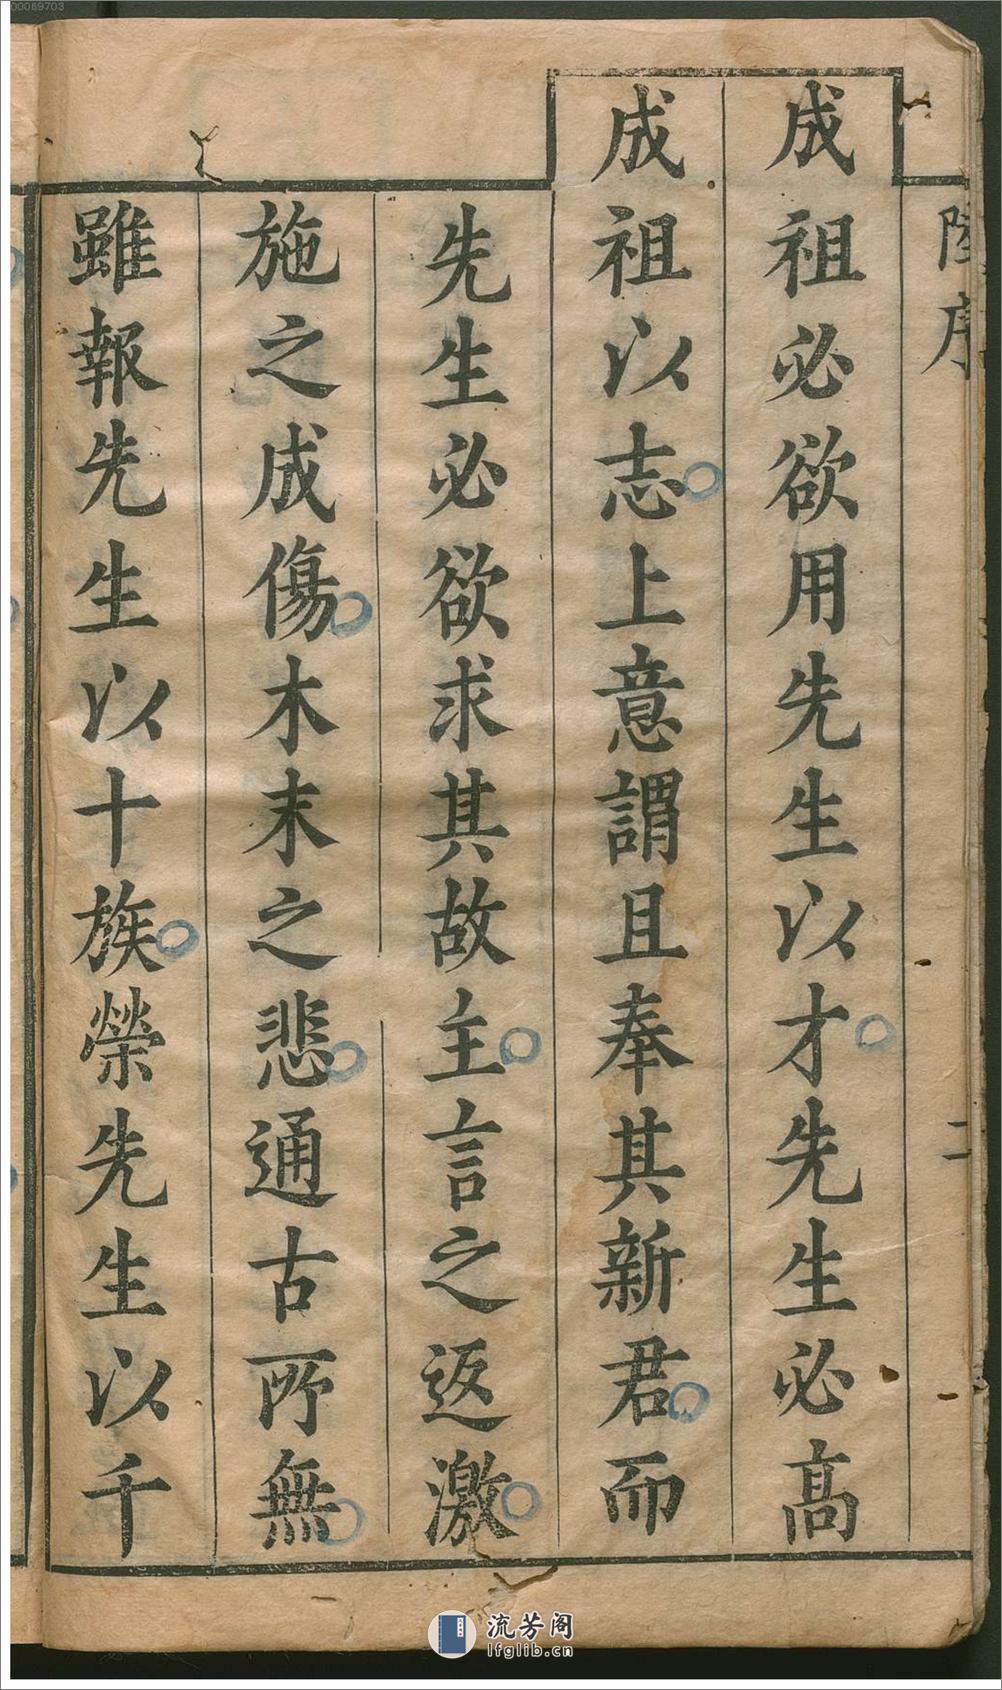 陸序
二
成祖必欲用先生以才先生必高
成祖以志上意謂且奉其新君而
先生必欲求其故主言之返激
施之成傷木末之悲通古所無
雖報先生以十族榮先生以千
00069703
流芳阁
lfglib.cn